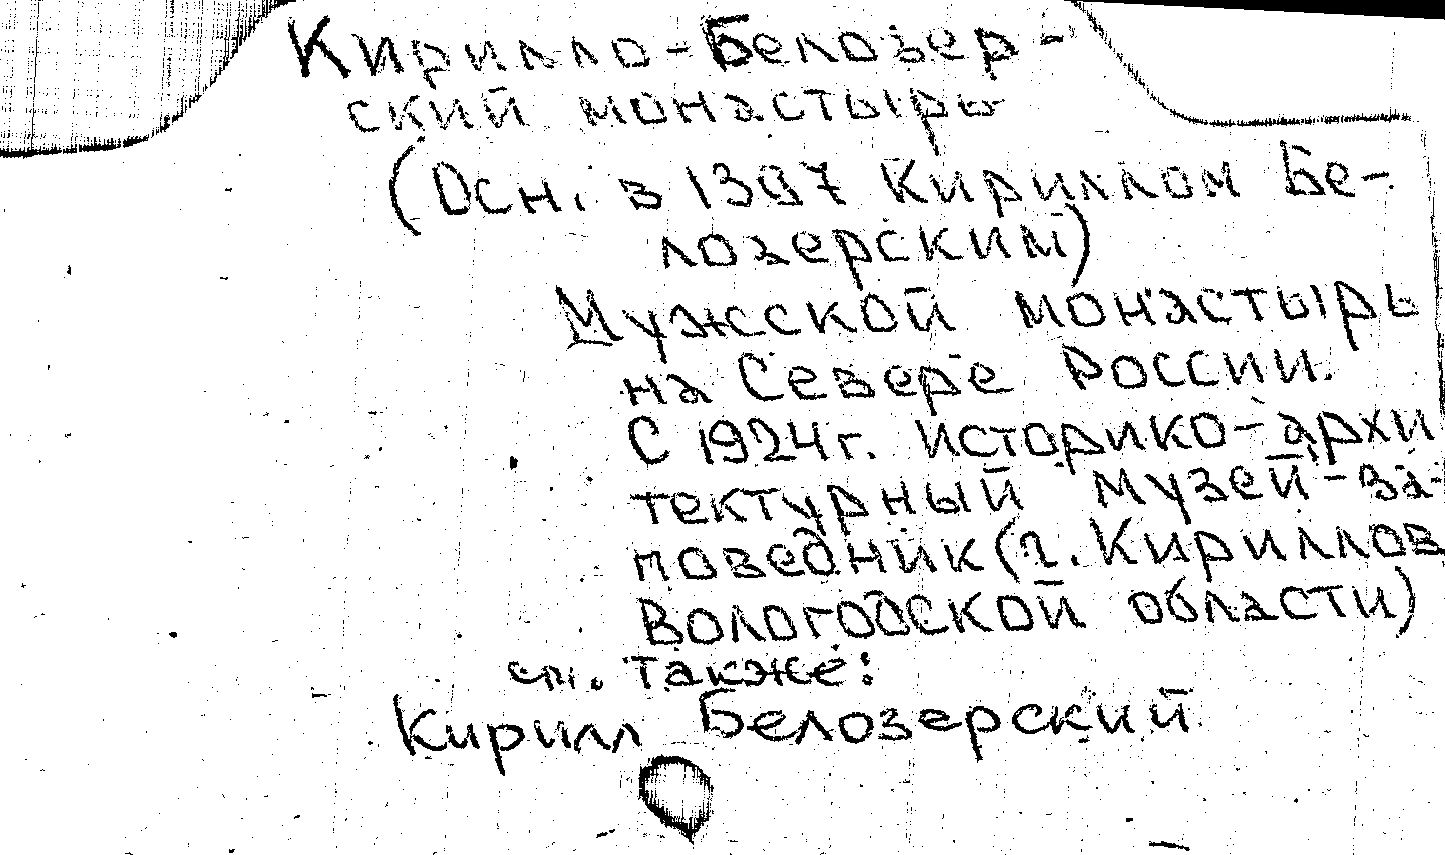 Кирилло-Белозер-
ский монастырь
(Осн. в 1397 Кириллом Бе-
лозерским)
Мужской монастырь
на Севере России.
С 1924 г. историко-архи
тектурный музей-за-
поведник (г. Кириллов
Вологодской области)
см. также:
Кирилл Белозерский